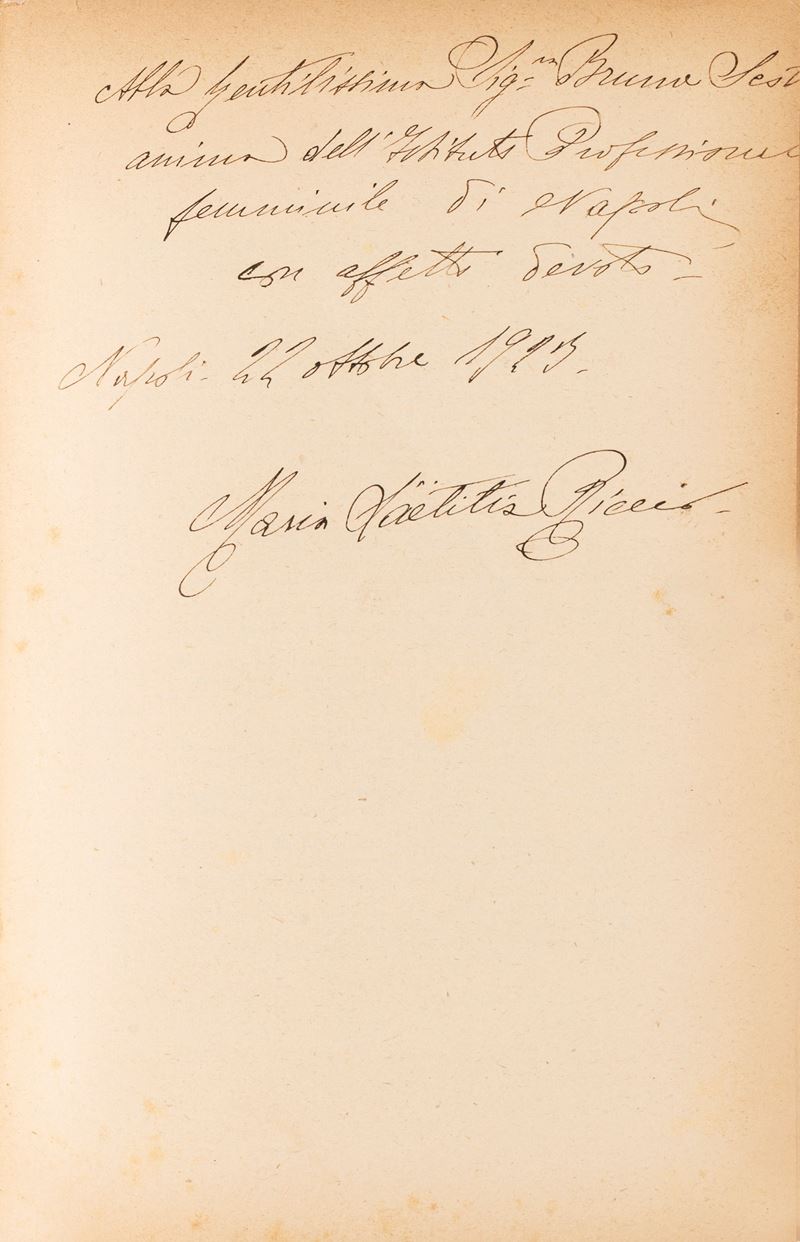 Alla gentilissima Sig.ra Bruno Sest
anima dell'Istituto Professionale
femminile di Napoli,
con affetto devoto -
Napoli - 22 ottobre 1923.
Maria Laëtitia Riccio -